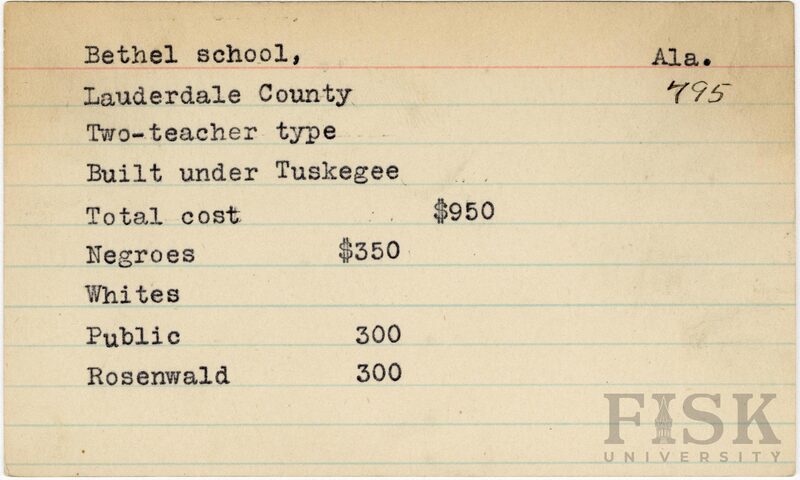 Bethel school, Ala.
Lauderdale County 795
Two-teacher type
Built under Tuskegee
Total cost $950
Negroes $350
Whites
Public 300
Rosenwald 300
FISK
UNIVERSITY